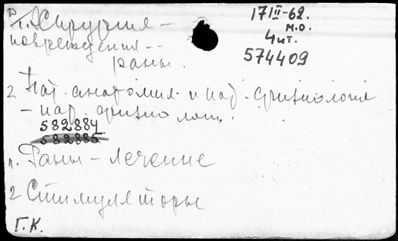 1. Хирургия -
повреждения -
раны.
17 II-62.
М.О.
4 чит.
574409
2 Пат. анатомия и пат. физиология
- пат. физиология.
582884
582885
1. Раны - лечение
2 Стимуляторы
Г.К.